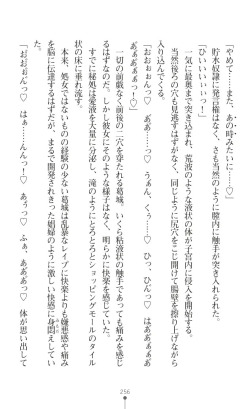 「やめて……また、あの時みたいに……♡」
　貯水奴隷に発言権はなく、さも当然のように膣内に触手が突き入れられた。
「ひいいいぃぃっ！」
　一気に最奥まで突き入れ、荒波のような液状の体が子宮内に侵入を開始する。
　当然後ろの穴も見逃すはずがなく、同じように尻穴をこじ開けて腸壁を擦り上げながら
入り込んでくる。
「おおぉぉんっ♡　あぁ……っ♡　うぁん、くぅ……っ♡　ひっ、ひんっ♡　はああああぁ
ああぁぁっー！」
　一切の前戯なく前後の二穴を穿たれる葛城。いくら粘液状の触手であっても痛みを感じ
るはずなのだ。しかし彼女にそのような様子はなく、明らかに快楽を感じていた。
　すでに秘処は愛液を大量に分泌し、滝のようにとろとろとショッピングモールのタイル
状の床に垂れ流す。
　本来、処女ではないものの経験の少ない葛城は乱暴なレイプよりも嫌悪感や痛み
を脳に伝達するはずだが、まるで開発されきった娼婦のように激しい快感に身悶えてい
た。
「おおぉんっ♡　はぁ……んんっ！　あぅっ♡　ふぁ、あああっ♡　体が思い出して
256